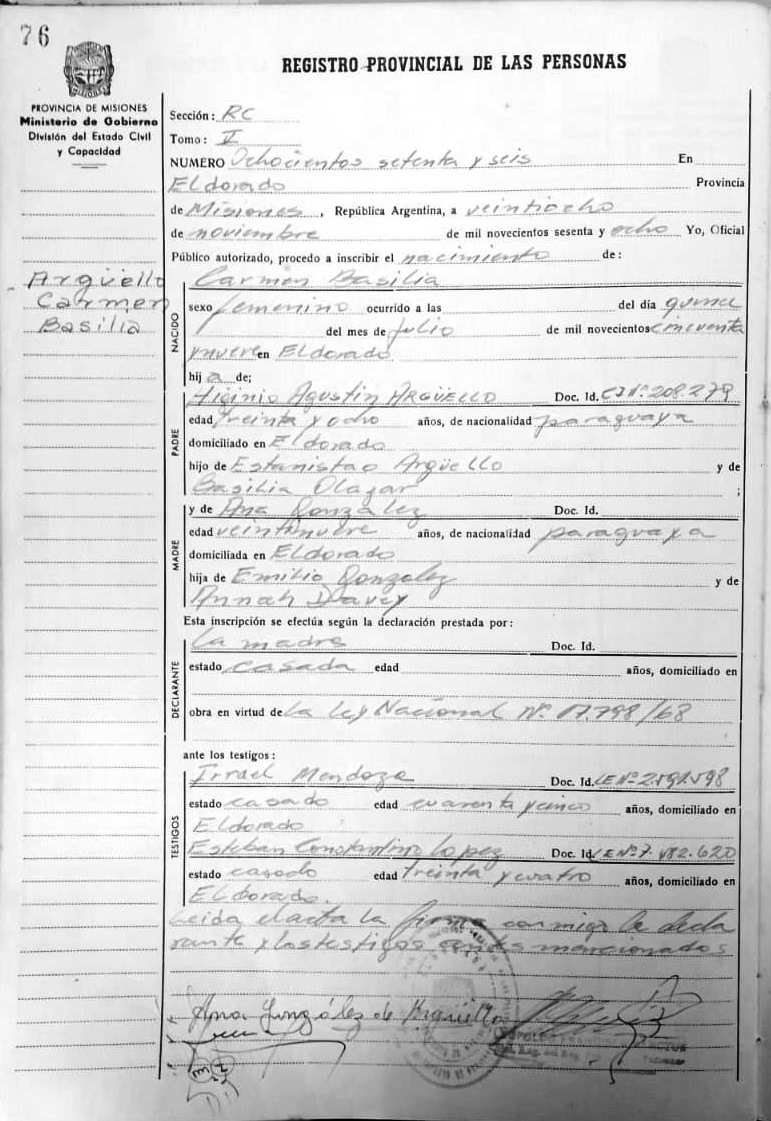 76
REGISTRO PROVINCIAL DE LAS PERSONAS
PROVINCIA DE MISIONES
Ministerio de Gobierno
División del Estado Civil
y Capacidad
Argüello
Carmen
Basilia
Sección: RC
Tomo: V
NUMERO Ochocientos setenta y seis En
Eldorado Provincia
de Misiones, República Argentina, a veintiocho
de noviembre de mil novecientos sesenta y ocho Yo, Oficial
Público autorizado, procedo a inscribir el nacimiento de:
NACIDO
Carmen Basilia
sexo femenino ocurrido a las del día quince
del mes de julio de mil novecientos cincuenta
y nueve en Eldorado
hija de;
PADRE
Higinio Agustin ARGÜELLO Doc. Id. CI Nº 208.279
edad treinta y ocho años, de nacionalidad paraguaya
domiciliado en Eldorado
hijo de Estanislao Argüello y de
Basilia Olazar ;
MADRE
y de Ana Gonzalez Doc. Id.
edad veintinueve años, de nacionalidad paraguaya
domiciliada en Eldorado
hija de Emilio Gonzalez y de
Annah Davey
Esta inscripción se efectúa según la declaración prestada por:
DECLARANTE
La madre Doc. Id.
estado casada edad años, domiciliado en
obra en virtud de la Ley Nacional Nº. 17.798/68
ante los testigos:
TESTIGOS
Irrael Mendoza Doc. Id. LE Nº
estado casado edad cuarenta y cinco años, domiciliado en
Eldorado
Esteban Constantino Lopez Doc. Id. LE Nº 7.482.620
estado casado edad treinta y cuatro años, domiciliado en
Eldorado.
Leida el acta la firma conmigo la decla
rante y los testigos antes mencionados
Ana Gonzáles de Argüello